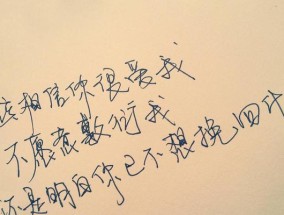 该相信你很爱我
不愿意敷衍我
还是明白你已不想挽回什